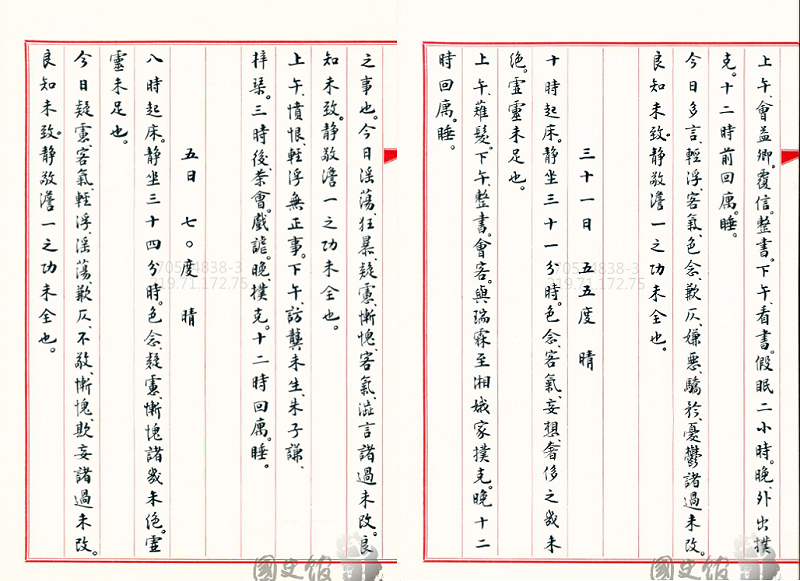 上午、會益卿。覆信。整書。下午、看書。假眠二小時。晚、外出撲
克。十二時前回寓。睡。
今日多言、輕浮、客氣、色念、歉仄、嫌惡、驕矜、憂鬱諸過未改。
良知未致。靜敬澹一之功未全也。
三十一日　五五度　晴
十時起床。靜坐三十一分時。色念、客氣、妄想、奢侈之幾未
絕。虛靈未足也。
上午、薙髮。下午、整書。會客。與瑞霖至湘娥家撲克。晚十二
時回寓。睡。
之事也。今日淫蕩、狂暴、疑慮、慚愧、客氣、誑言諸過未改。良
知未致。靜敬澹一之功未全也。
上午、憤恨、輕浮無正事。下午、訪龔未生、朱子謙、
梓琹。三時後、茶會。戲謔。晚、撲克。十二時回寓。睡。
五日　七〇度　晴
八時起床。靜坐三十四分時。色念、疑慮、慚愧諸幾未絕。虛
靈未足也。
今日疑慮、客氣、輕浮、淫蕩、歉仄、不敬、慚愧、欺妄諸過未改。
良知未致。靜敬澹一之功未全也。
70534838-3
119.71.172.75
70534838-3
119.71.172.75
國史館
國史館